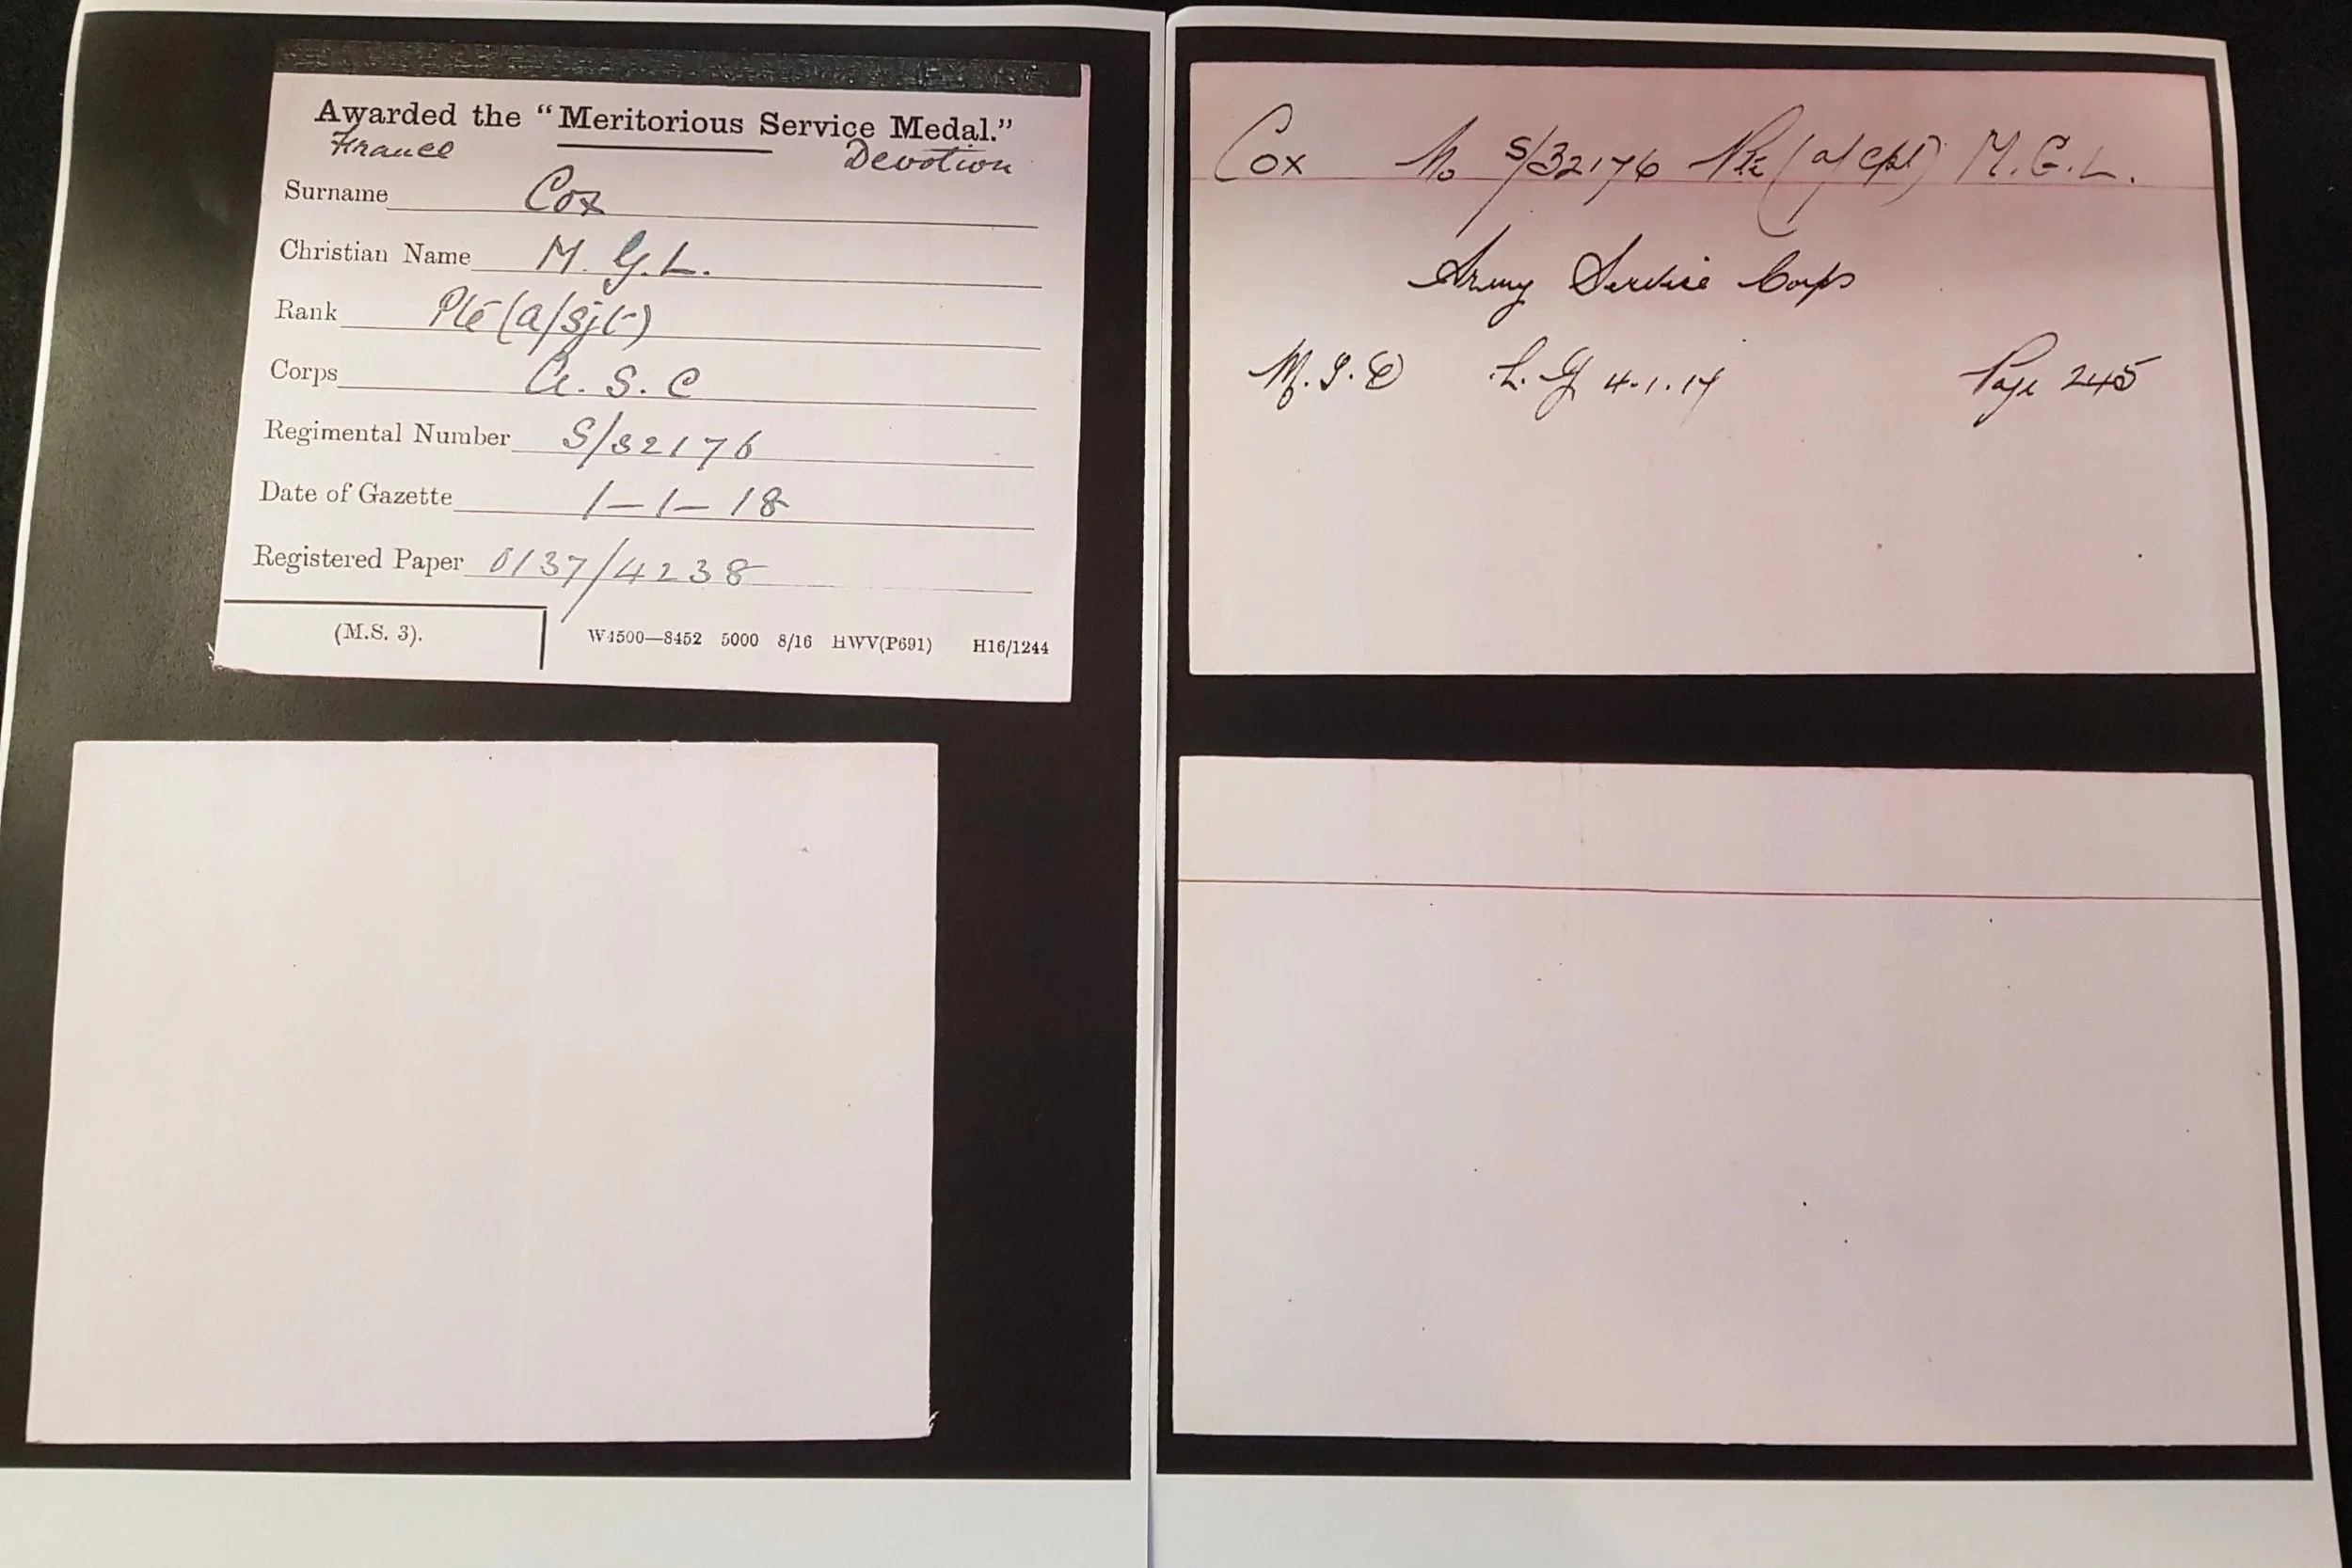 Awarded the "Meritorious Service Medal."
France Devotion
Surname Cox
Christian Name M. G. L.
Rank Pte (a/Sjt)
Corps A. S. C
Regimental Number S/32176
Date of Gazette 1-1-18
Registered Paper 0137/4238
(M.S. 3). W4500—8452 5000 8/16 HWV(P691) H16/1244
Cox No S/32176 Pte (a/Cpl) M.G.L.
Army Service Corps
M.I.D L.G 4.1.17 Page 245